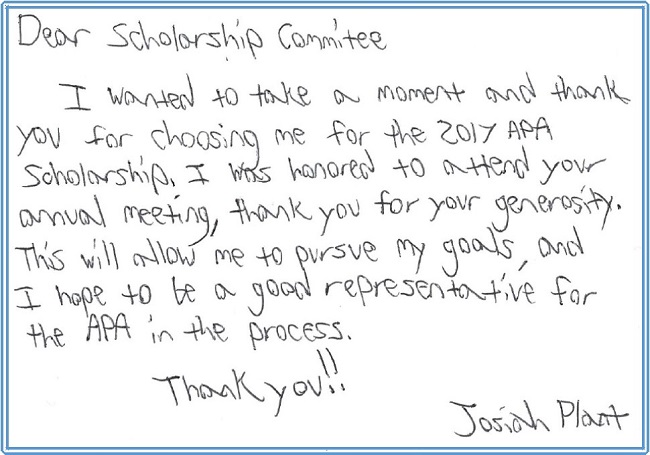 Dear Scholarship Commitee
I wanted to take a moment and thank
you for choosing me for the 2017 APA
Scholarship. I was honored to attend your
annual meeting, thank you for your generosity.
This will allow me to pursue my goals, and
I hope to be a good representative for
the APA in the process.
Thank you!!
Josiah Plant